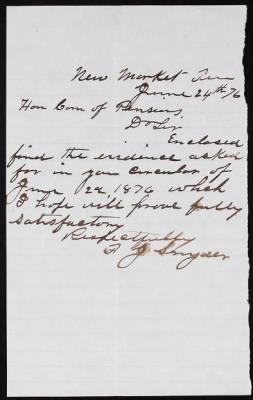 New Market Ten
June 24th 76
Hon Com of Pensions,
Dr Sir
Enclosed
find the evidence asked
for in your circular of
June 22 1876 which
I hope will prove fully
satisfactory
Respectfully
Snyder